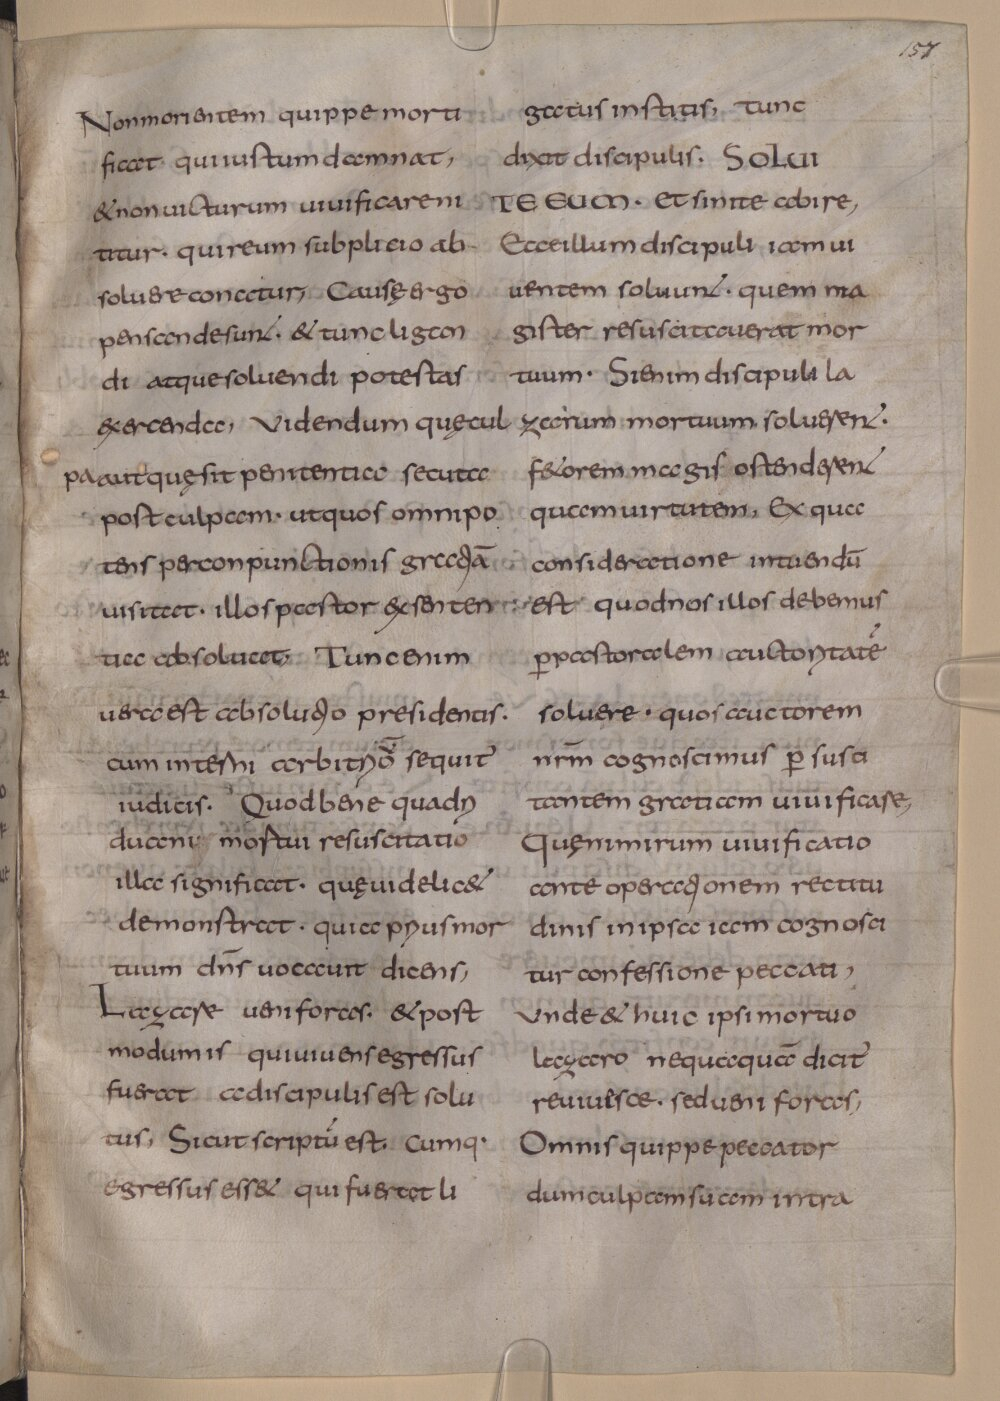 157
Non morientem quippe morti
ficat qui iustum damnat,
& non uicturum uiuificare ni
titur· qui reum subplicio ab
soluere conatur, Causę ergo
pensandę sunt· & tunc ligan
di atque soluendi potestas
exercenda, Videndum quę cul
pa aut quę sit penitentia secuta
post culpam· ut quos omnipo
tens per conpunctionis gratiā
uisitat· illos pastor& sententi
tiae absoluat, Tunc enim
uera est absolutio presidentis·
cum interni arbitriū sequit̄
iudicis· Quod bene quadri
duani mortui resuscitatio
illa significat· quę uidelic&
demonstrat· quia prius mor
tuum dn̄s uocauit dicens,
Lazare ueni foras· & post
modum is qui uiuens egressus
fuerat a discipulis est solu
tus, Sicut scriptū est· Cumq·
egressus ess& qui fuerat li
gatus institis, tunc
dixit discipulis· SOLUI
TE EUM· Et sinite abire,
Ecce illum discipuli iam ui
uentem soluunt· quem ma
gister resuscitauerat mor
tuum· Si enim discipuli la
zarum mortuum soluerent·
f&orem magis ostenderent
quam uirtutem, Ex qua
consideratione intuendū
est quod nos illos debemus
p̱ pastoralem auctoritatē
soluere· quos auctorem
nr̄m cognoscimus p̱ susci
tantem gratiam uiuificare,
Quę nimirum uiuificatio
ante operationem rectitu
dinis in ipsa iam cognosci
tur confessione peccati,
Vnde & huic ipsi mortuo
lazaro nequaquā dicit̄
reuiuesce· sed ueni foras,
Omnis quippe peccator
dum culpam suam intra